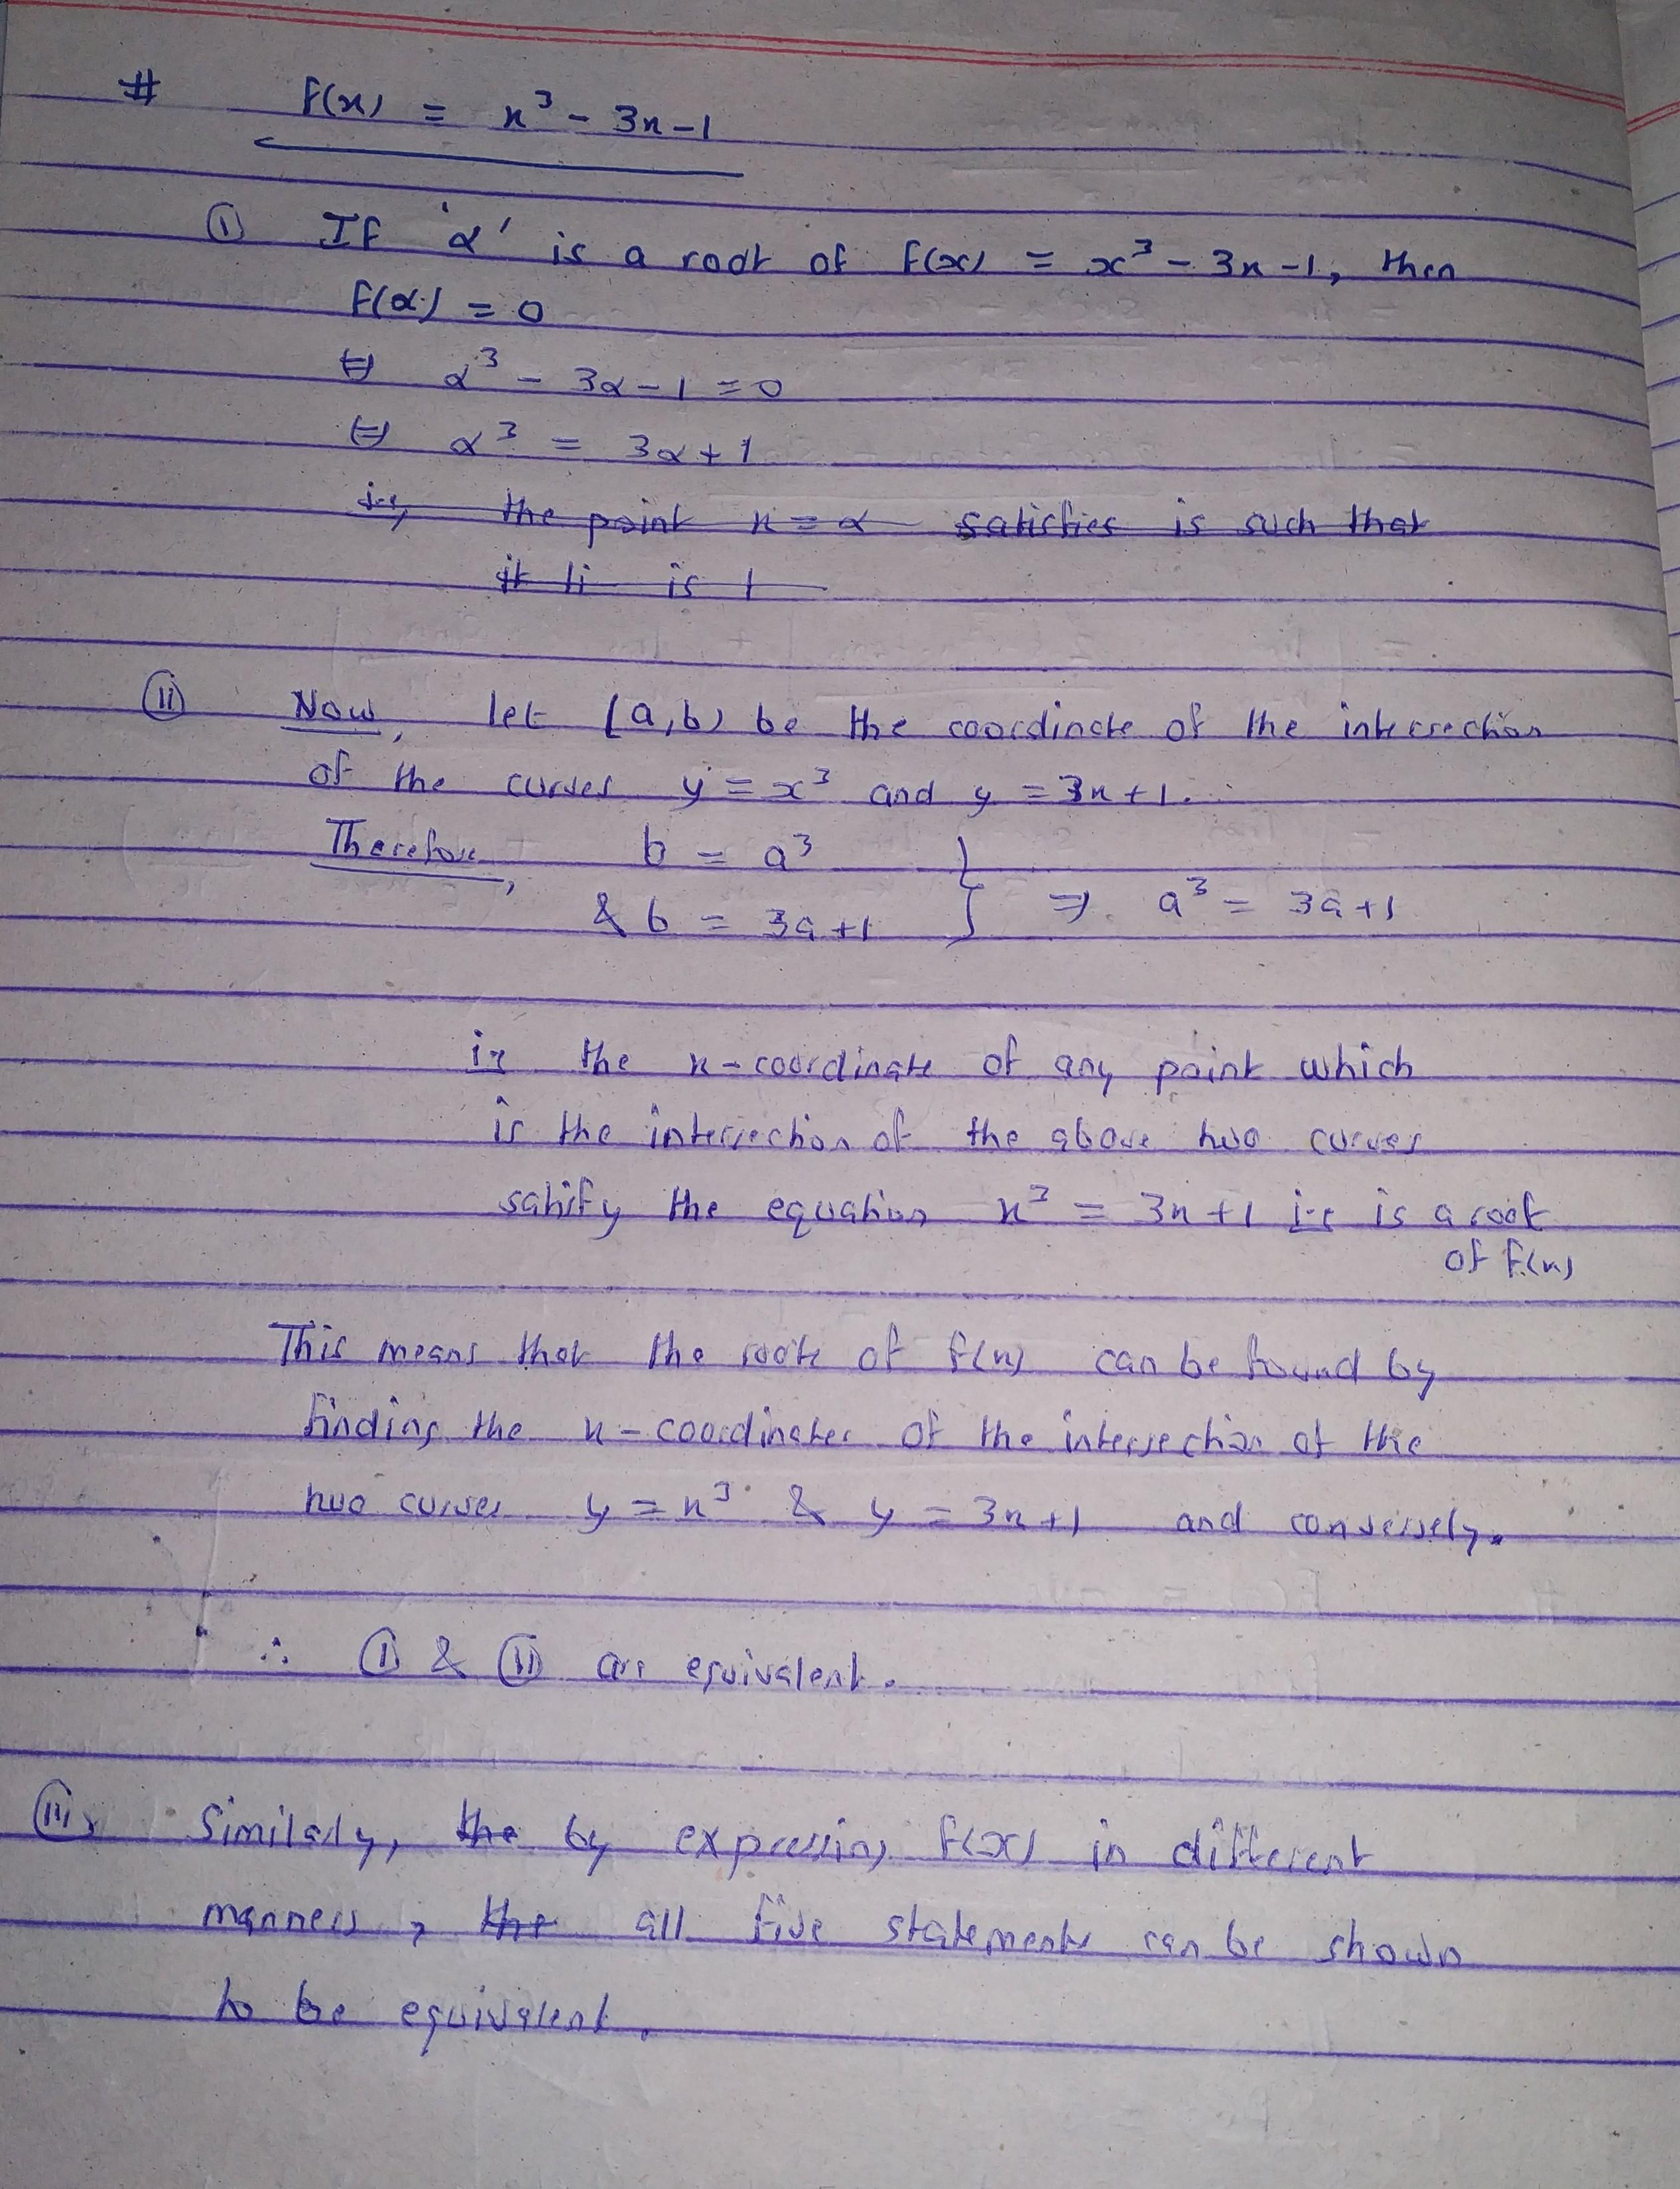 # f(x) = x³ - 3x - 1
① If 'α' is a root of f(x) = x³ - 3x - 1, then
f(α) = 0
⇔ α³ - 3α - 1 = 0
⇔ α³ = 3α + 1
i.e, the point x = α satisfies is such that
it li is 1
⑪ Now, let (a, b) be the coordinate of the intersection
of the curves y = x³ and y = 3x + 1.
Therefore, b = a³
& b = 3a + 1 } ⇒ a³ = 3a + 1
ie the x-coordinate of any point which
is the intersection of the above two curves
satify the equation x³ = 3x + 1 i.e is a root
of f(x)
This means that the roots of f(x) can be found by
finding the x-coordinates of the intersection of the
two curves y = x³ & y = 3x + 1 and conversely.
∴ ① & ⑪ are equivalent.
(iii) Similarly, the by expressing f(x) in different
manners, the all five statements can be shown
to be equivalent.